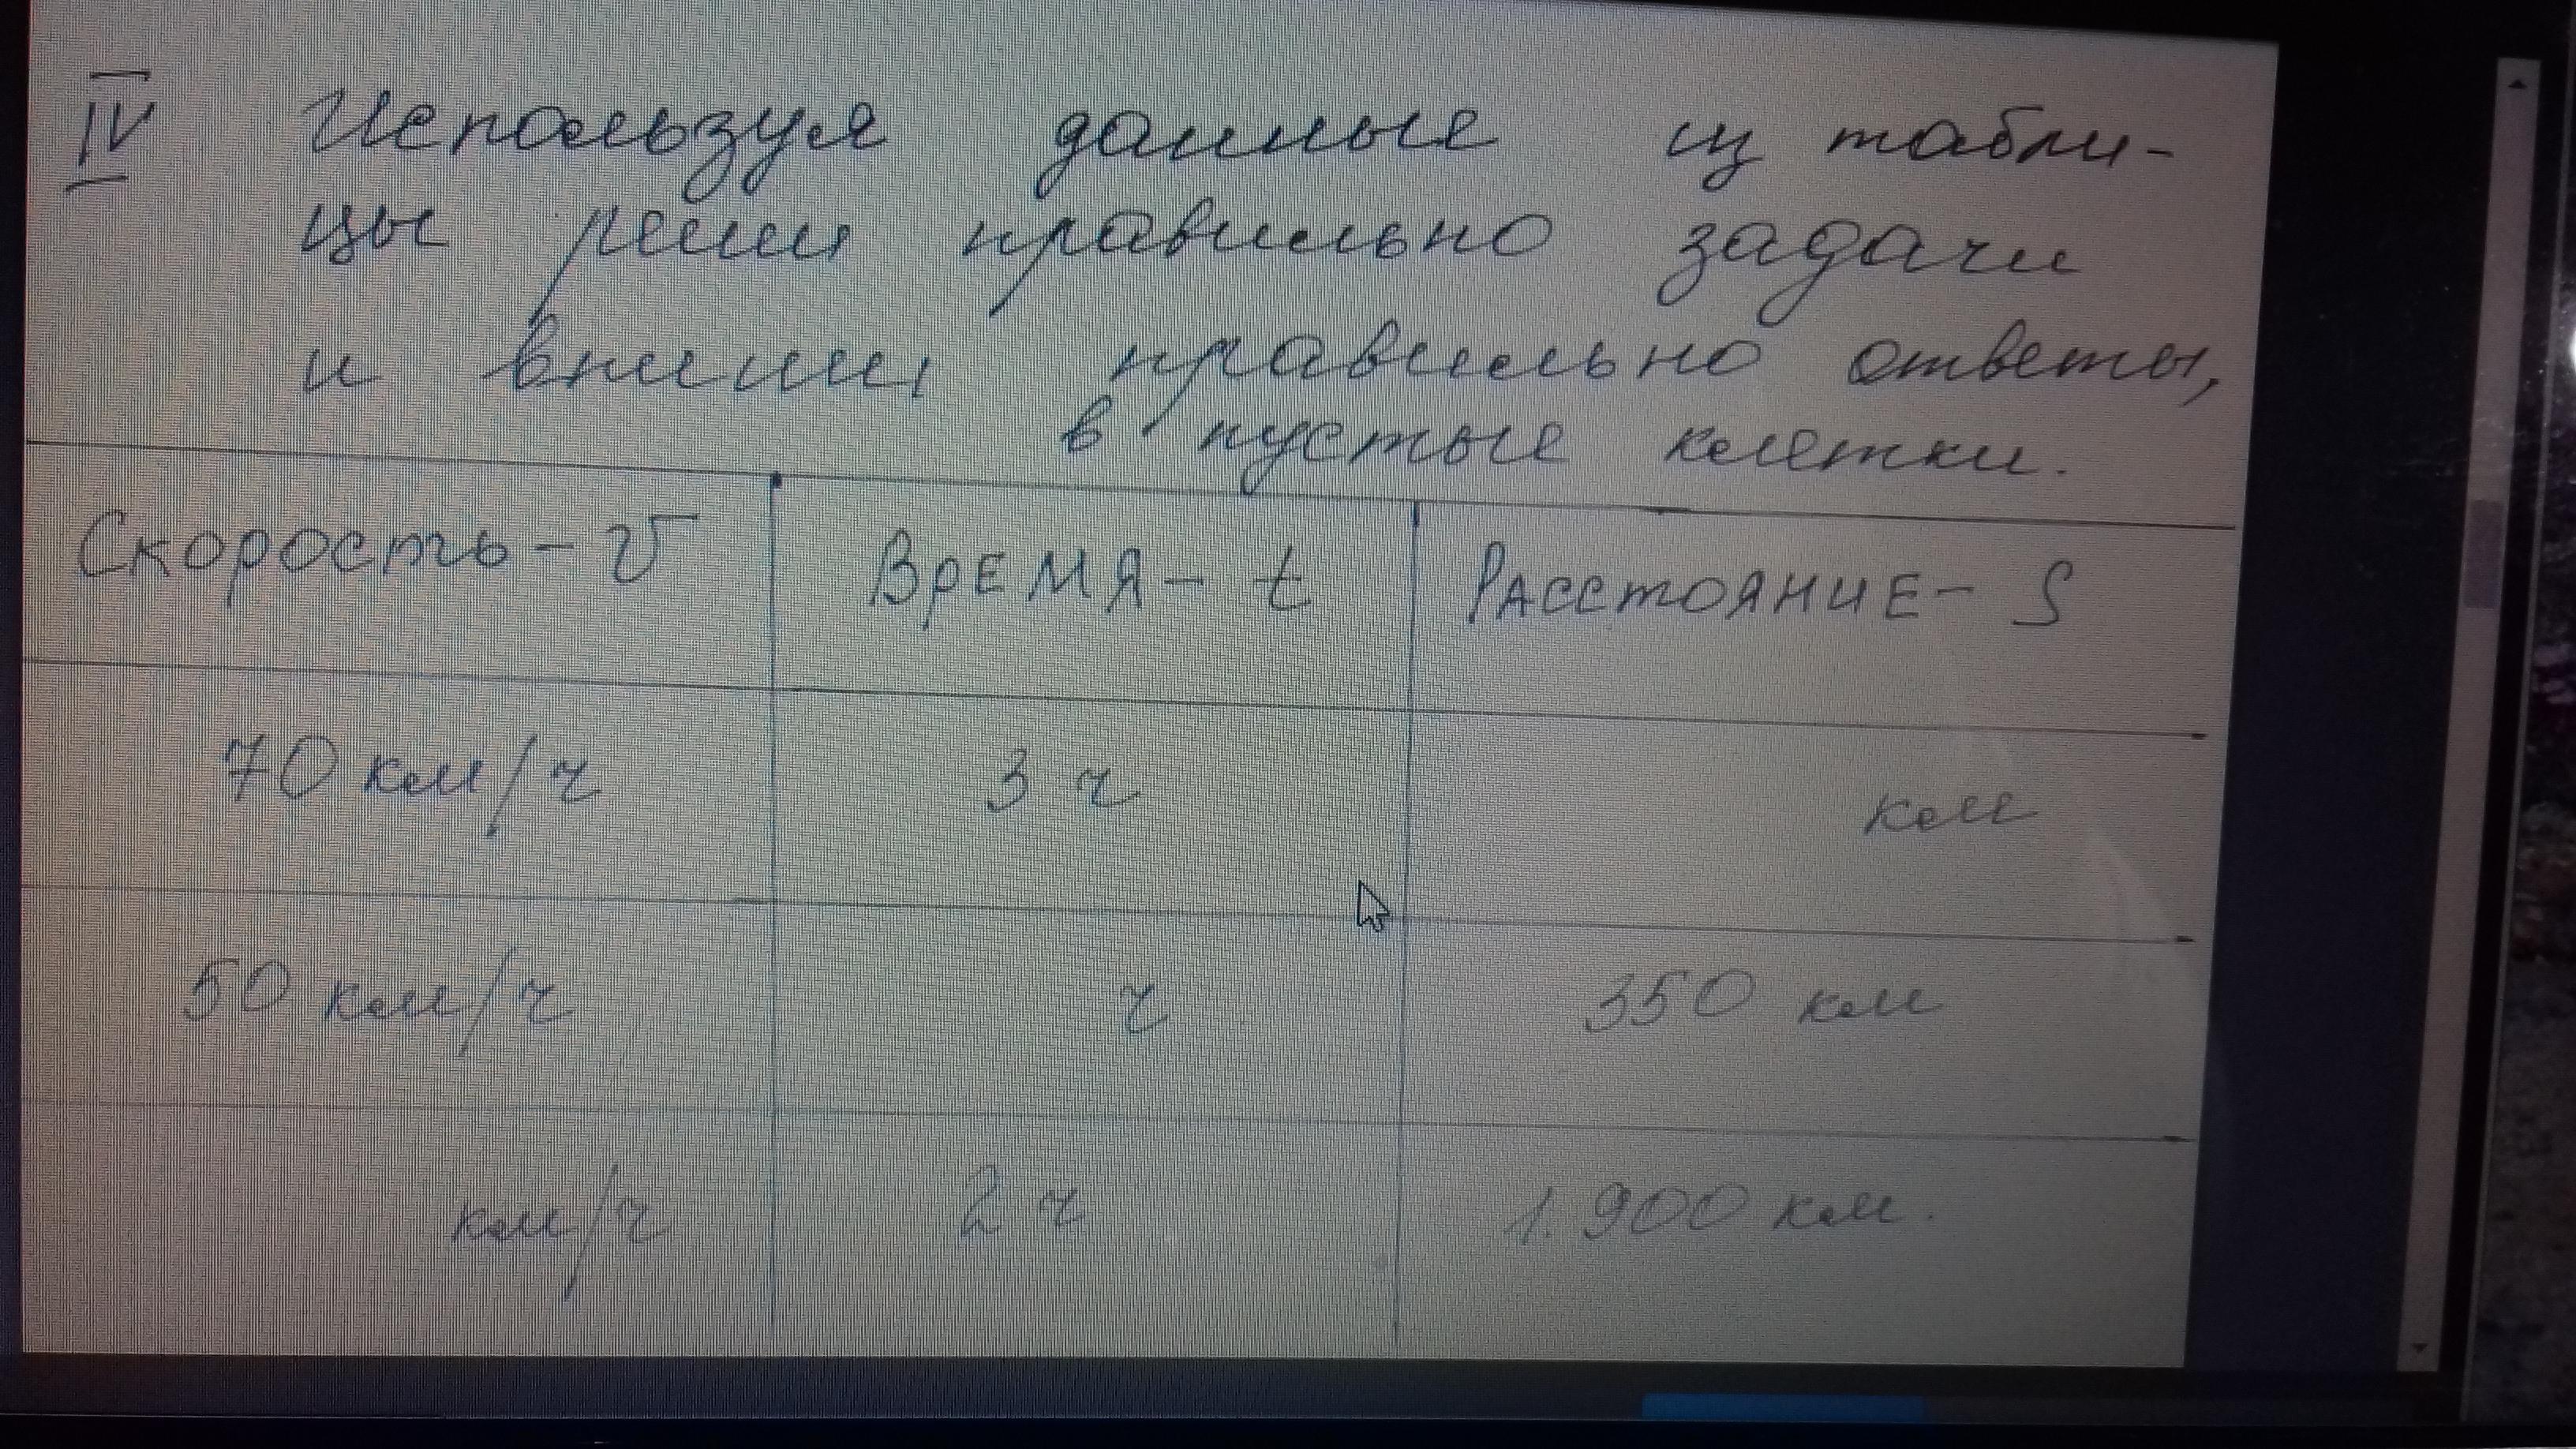 IV Используя данные из табли-
цы реши правильно задачи
и впиши правильно ответы,
в пустые клетки.
Скорость - v Время - t Расстояние - S
70 км/ч 3 ч км
50 км/ч ч 350 км
км/ч 2 ч 1.900 км.